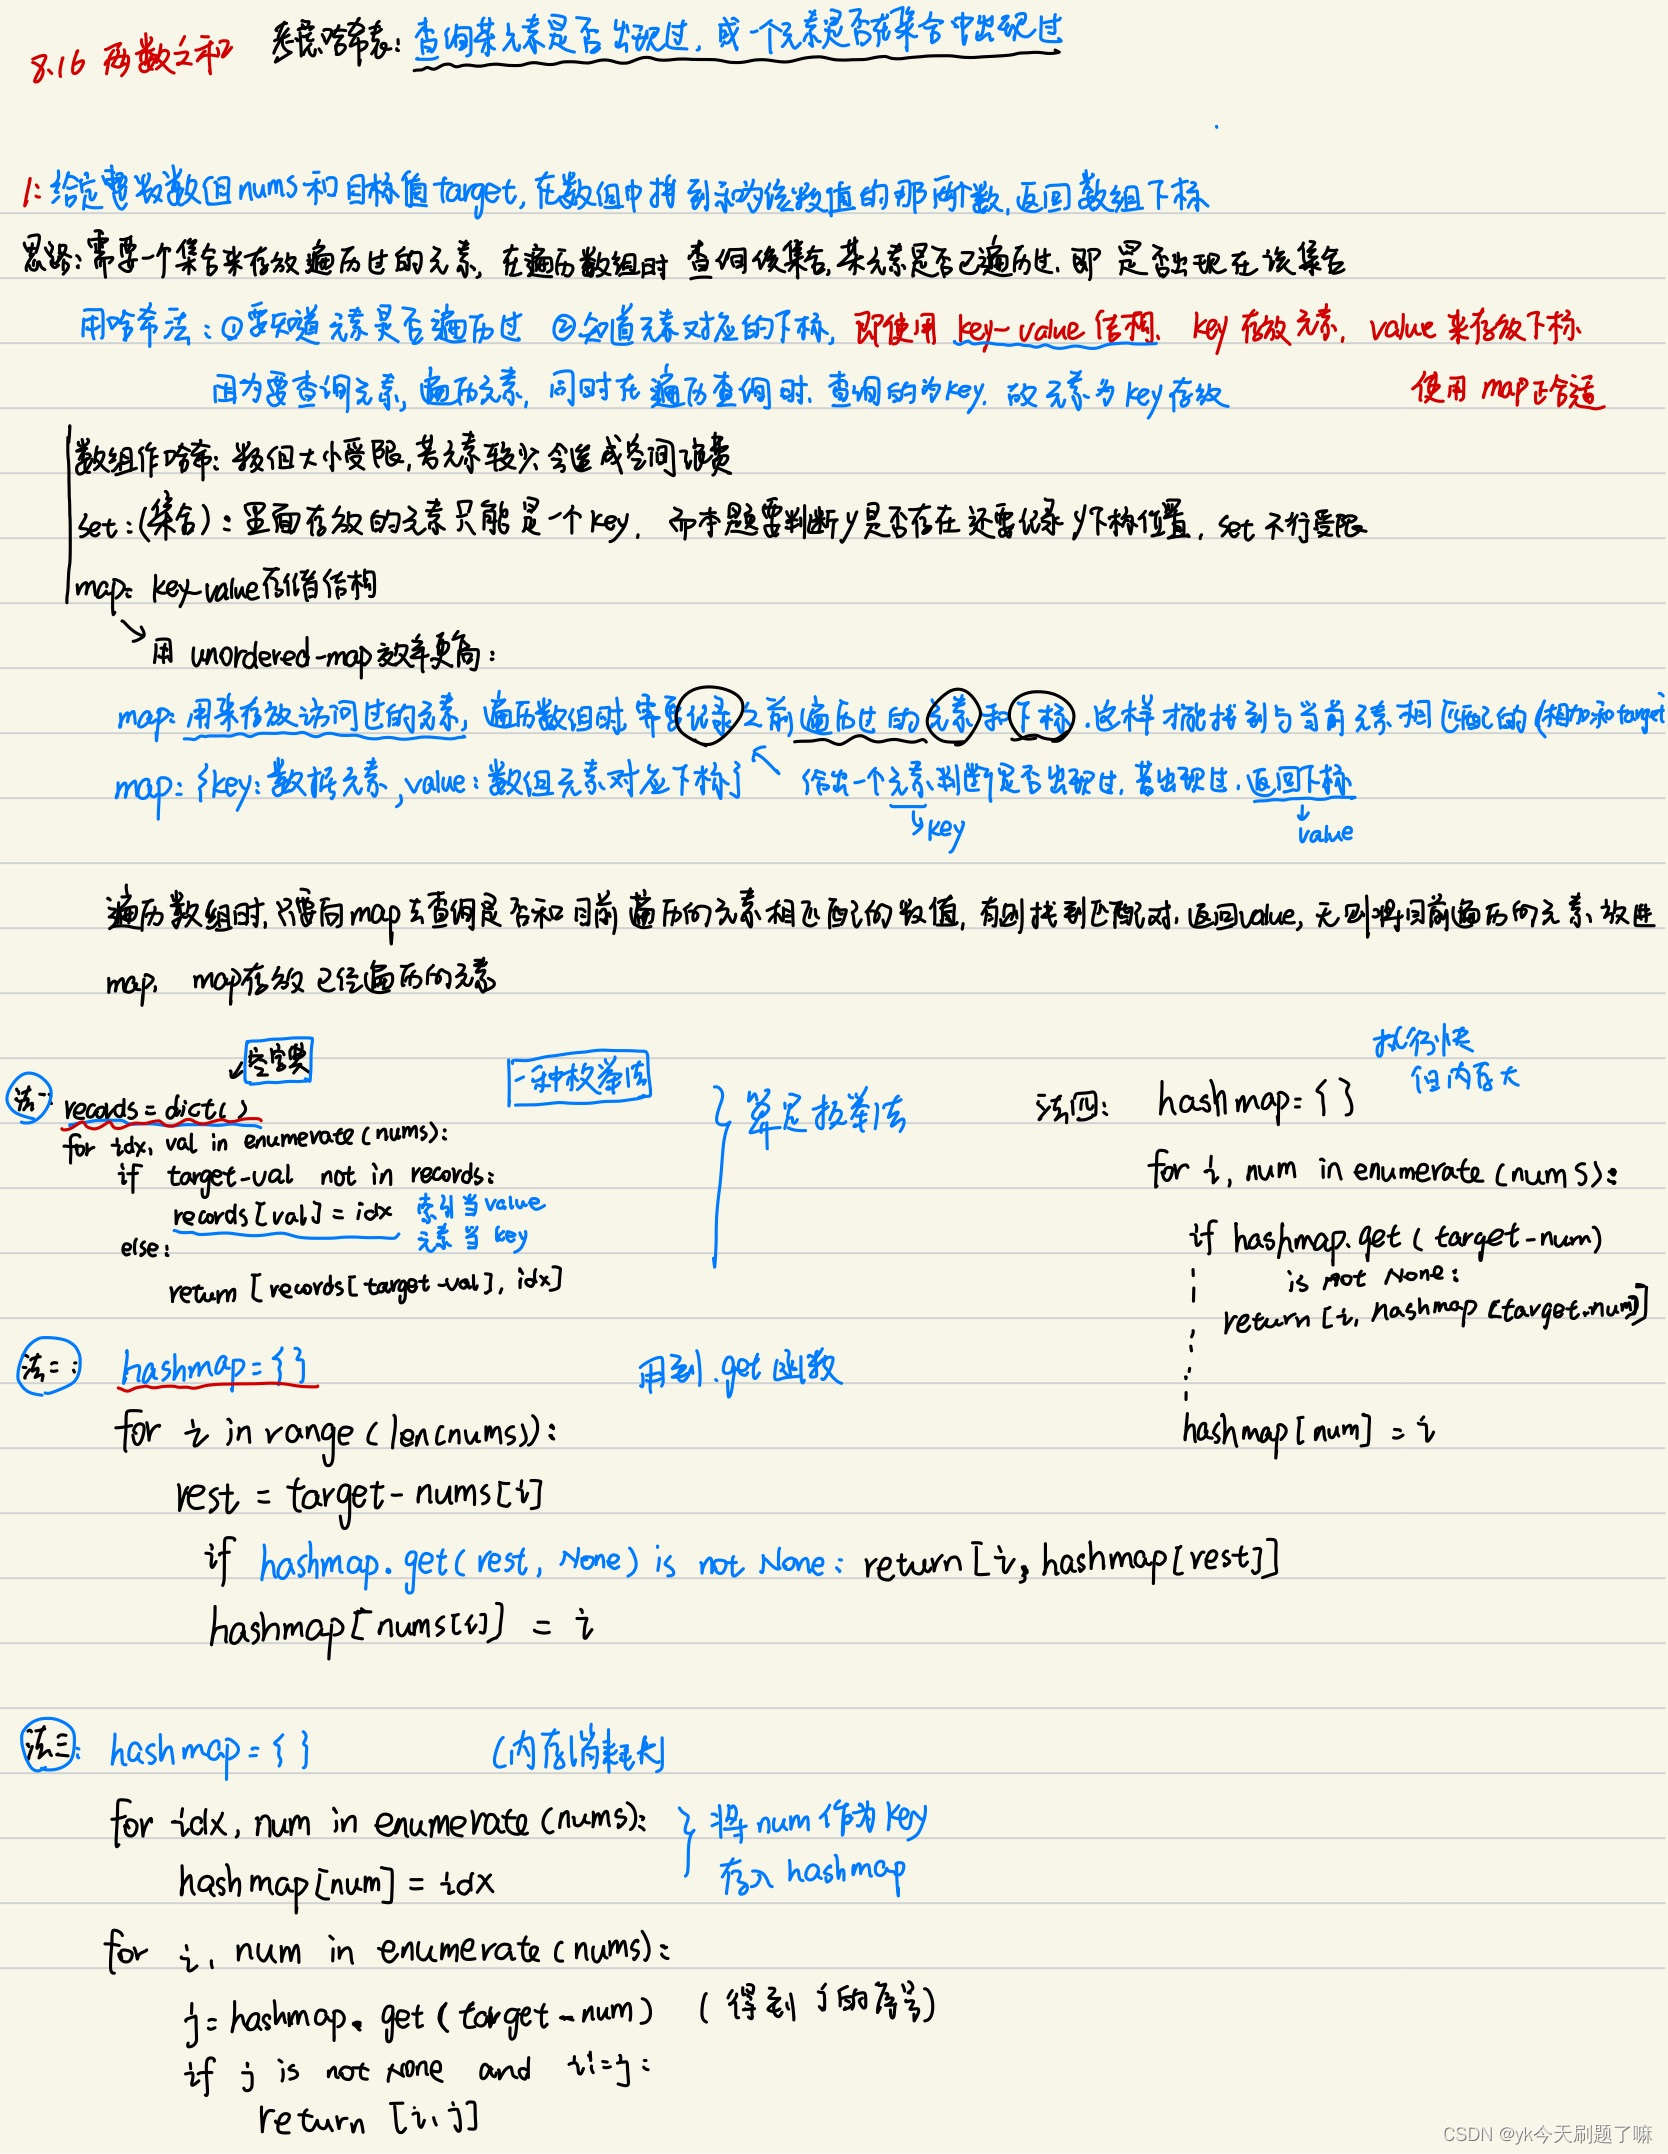 8.16 两数之和 考虑哈希表: 查询某元素是否出现过, 或一个元素是否在集合中出现过
1: 给定整数数组nums和目标值target, 在数组中找到和为该数值的那两个数, 返回数组下标
思路: 需要一个集合来存放遍历过的元素, 在遍历数组时 查询该集合, 某元素是否已遍历过. 即 是否出现在该集合
用哈希法: ①要知道元素是否遍历过 ②知道元素对应的下标, 即使用 key-value 结构. key存放元素, value来存放下标
因为要查询元素, 遍历元素, 同时在遍历查询时. 查询的为key. 故元素为key存放 使用 map正合适
数组作哈希: 数组大小受限, 若元素较少会造成空间浪费
set: (集合): 里面存放的元素只能是一个key, 而本题要判断y是否存在还要记录y下标位置, set 不行受限
map: key-value存储结构
用 unordered-map效率更高:
map: 用来存放访问过的元素, 遍历数组时, 需要记录之前遍历过的元素和下标. 这样才能找到与当前元素相匹配的(相加和target
map: {key: 数据元素, value: 数组元素对应下标} 给出一个元素判断是否出现过, 若出现过. 返回下标
key value
遍历数组时, 只要向map去查询是否和目前遍历的元素相匹配的数值, 有则找到匹配对. 返回value, 无则将目前遍历的元素放进
map, map存放已经遍历的元素
空字典
法一: records = dict() 一种枚举法
for idx, val in enumerate(nums):
if target-val not in records:
records[val] = idx 索引当value
元素当 key
else:
return [records[target-val], idx]
算是枚举法
法四: hashmap={} 执行快
但内存大
for i, num in enumerate(nums):
if hashmap.get(target-num)
is not None:
return [i, hashmap[target-num]]
hashmap[num] = i
法二: hashmap={} 用到.get函数
for i in range(len(nums)):
rest = target-nums[i]
if hashmap.get(rest, None) is not None: return[i, hashmap[rest]]
hashmap[nums[i]] = i
法三: hashmap={} (内存消耗大)
for idx, num in enumerate(nums): 将num作为key
hashmap[num] = idx 存入hashmap
for i, num in enumerate(nums):
j=hashmap.get(target-num) (得到j的序号)
if j is not None and i!=j:
return [i,j]
CSDN @yk今天刷题了嘛